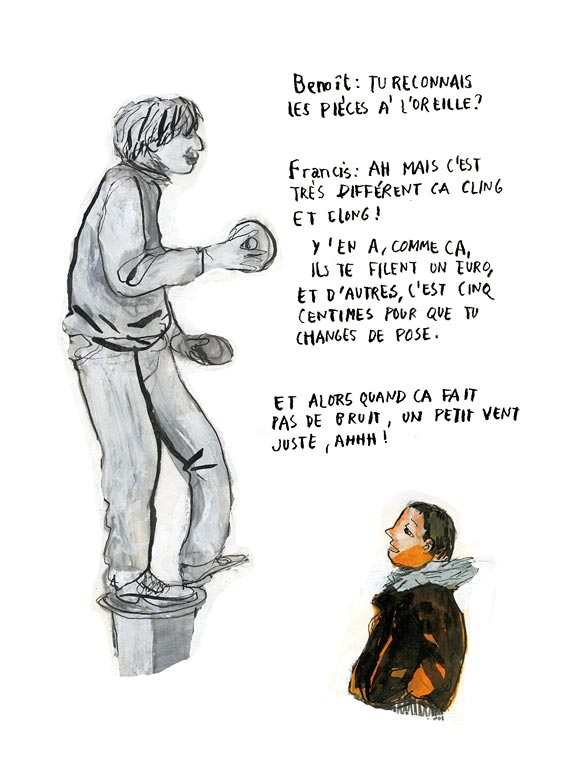 Benoît: TU RECONNAIS
LES PIÈCES A' L'OREILLE?
Francis: AH MAIS C'EST
TRÈS DIFFÉRENT CA CLING
ET CLONG!
Y'EN A, COMME CA,
ILS TE FILENT UN EURO,
ET D'AUTRES, C'EST CINQ
CENTIMES POUR QUE TU
CHANGES DE POSE.
ET ALORS QUAND CA FAIT
PAS DE BRUIT, UN PETIT VENT
JUSTE, AHHH!